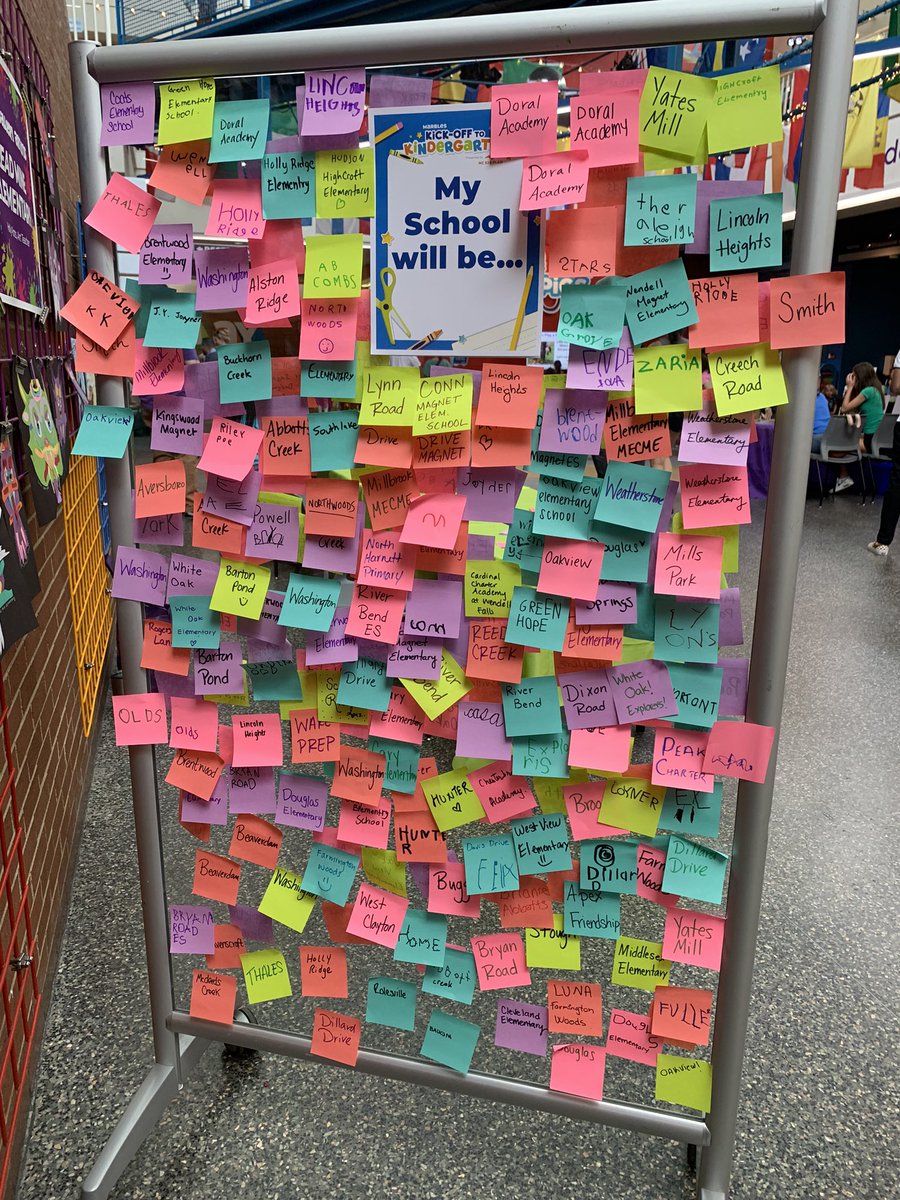 Coats
Elementary
School
Green Hope
Elementary
SCHOOL
Doral
Academy
LINC
HEIGHTS
MARBLES
KICK-OFF TO
KINDERGARTEN
My
School
will be...
DORAL
Academy
DORAL
Academy
Doral
Academy
Yates
Mill
HIGHCROFT
Elementry
Holly Ridge
Elementry
HUDSON
HighCroft
Elementary
THALES
HOLLY
RIDGE
Brentwood
Elementary
Washington
Alston
Ridge
A B
COMBS
NORTH
WOODS
STARS
the r
aleigh
school
Lincoln
Heights
KK
J.Y. Joyner
Millbrook
Elementary
OAK
GROVE
Wendell
Magnet
Elementary
HOLLY
RIDGE
Smith
Buckhorn
Creek
ELEMENTARY
Lynn
Road
CONN
MAGNET
ELEM.
SCHOOL
Lincoln
Heights
ZARIA
Creech
Road
Oakview
Kingswood
Magnet
Riley
Pee
Abbotts
Creek
Southlake
Drive
DRIVE
MAGNET
Brent-
WOOD
Millbrook
Elementary
MECME
Weatherstone
Elementary
Aversboro
York
Creek
Powell
NORTHWOODS
Creek
Millbrook
MECME
Joyner
Oakview
elementary
school
Weatherstone
Weatherstone
Elementary
Washington
White
Oak
Barton
Pond
North
Harnett
Primary
Cardinal
Charter
Academy
at Wendell
Falls
Oakview
Douglas
Mills
Park
White
Oak
Elementary
Washington
River
Bend
ES
Conn
GREEN
HOPE
Springs
LYON'S
Rogers
Lane
Barton
Pond
Elementary
Magnet
Elementary
REEDY
CREEK
Elementary
Drive
River
Bend
River
Bend
Dixon
Road
White
Oak!
Explorers!
OLDS
Olds
Lincoln
Heights
WAKE
PREP
Cary
Elementary
Peak
CHARTER
Brentwood
BRYAN
ROAD
Douglas
Elementary
Washington
Elementary
HUNTER
Academy
Elementary
School
HUNTER
LORIVER
Beaverdam
Beaverdam
Farmington
Woods
Davis Drive
FELIX
West View
Elementary
Dillard
Farm
Wood
Dillard
Drive
Washington
West
Clayton
Bugg
Brianna
Abbotts
Apex
Friendship
BRYAN
ROAD
ES
HOME
Bryan
Road
Stough
Middlesex
Elementary
Yates
Mill
McDeeds
Creek
THALES
HOLLY
Ridge
Rolesville
creek
Cleveland
Elementary
LUNA
Farmington
Woods
Douglas
Elementary
FULLER
Dillard
Drive
BAUCOM
Douglas
OAKVIEW!